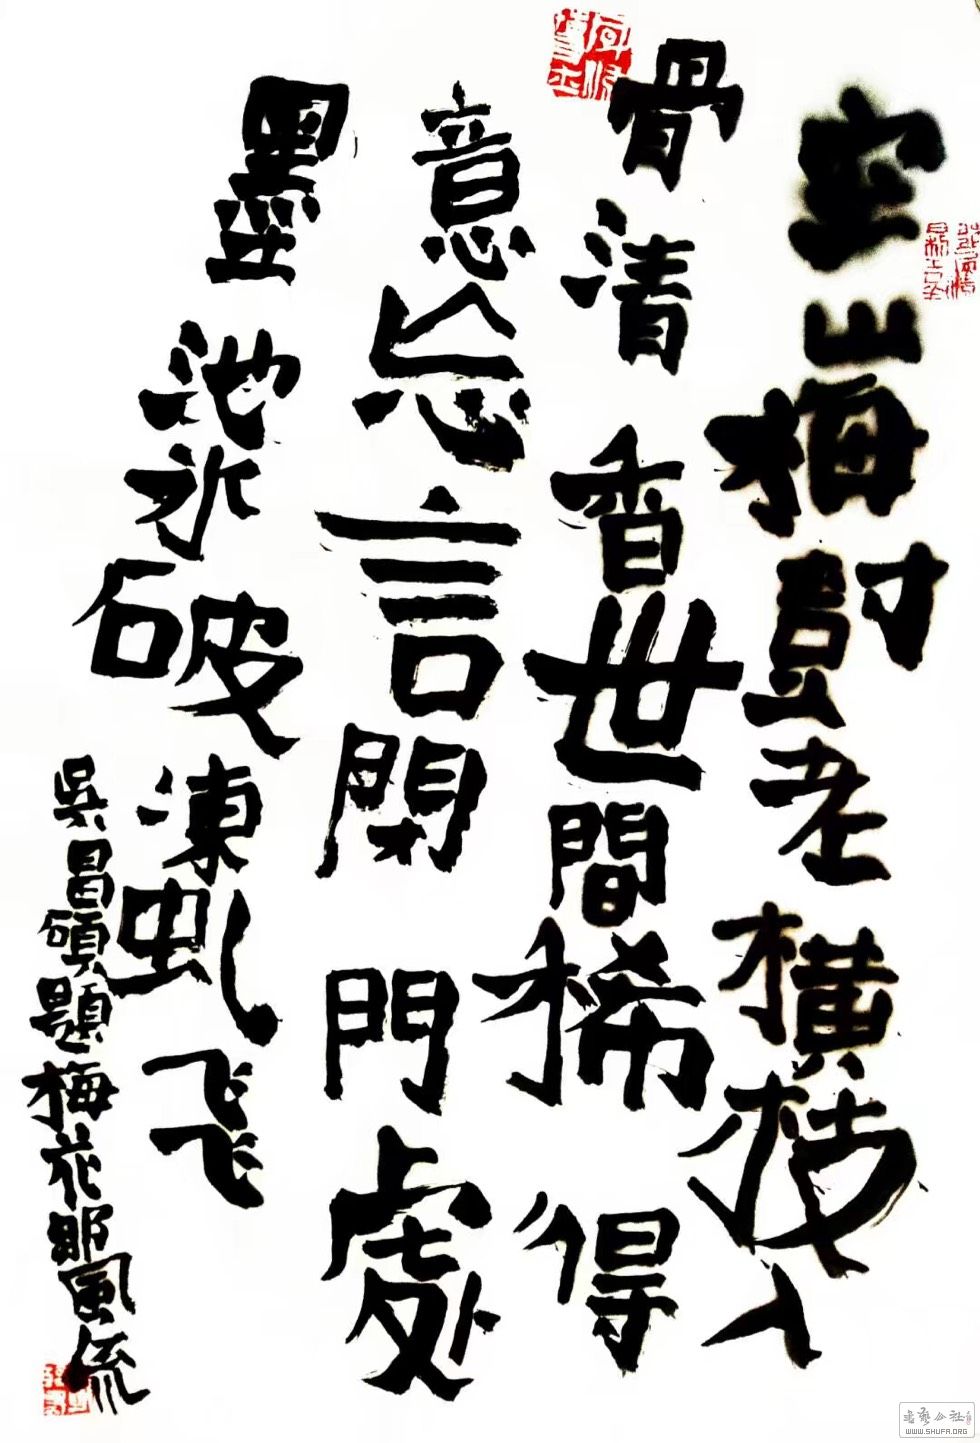 空山梅樹老橫枝入
骨清香世間稀得
意忘言閉門處
墨池冰破凍虬飛
吳昌碩題梅花鄒風流
WWW.SHUFA.ORG